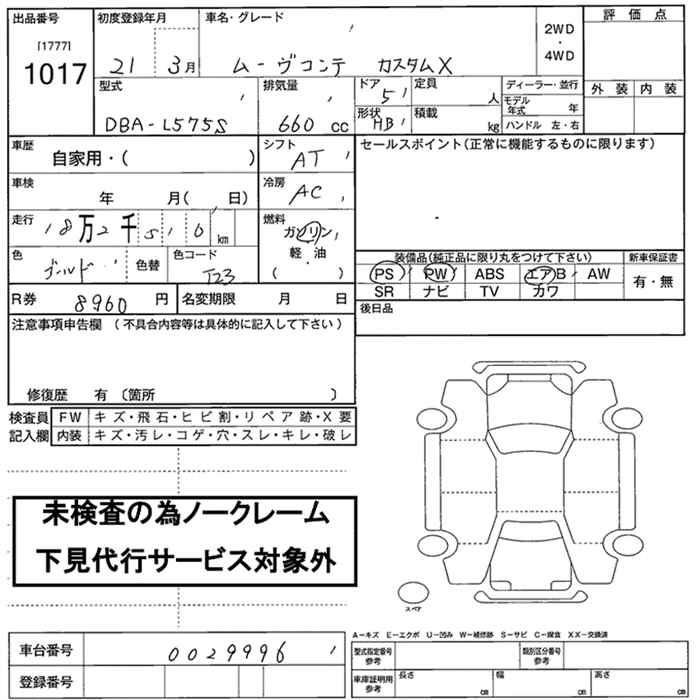 出品番号 初度登録年月 車名・グレード 2WD ・ 4WD 評価点
[1777]
1017 21 3月 ムーヴコンテ カスタムX
型式 排気量 ドア 定員 ディーラー・並行 外装 内装
5 人 モデル年式 年
DBA-L575S 660 cc 形状 HB 積載 kg ハンドル 左・右
車歴 自家用・( ) シフト AT セールスポイント(正常に機能するものに限ります)
車検 年 月( 日) 冷房 AC
走行 18万2千510 km 燃料 ガソリン
軽・油
( )
色 ゴールド 色替 色コード T23
装備品(純正品に限り丸をつけて下さい) 新車保証書
PS PW ABS エアB AW 有・無
SR ナビ TV カワ
R券 8960 円 名変期限 月 日 後日品
注意事項申告欄 (不具合内容等は具体的に記入して下さい)
修復歴 有 (箇所 )
検査員 FW キズ・飛石・ヒビ割・リペア跡・X要
記入欄 内装 キズ・汚レ・コゲ・穴・スレ・キレ・破レ
未検査の為ノークレーム
下見代行サービス対象外
スペア
A-キズ E-エクボ U-凹み W-補修跡 S-サビ C-腐食 XX-交換済
車台番号 0029996 型式指定番号 参考 類別区分番号 参考
登録番号 車庫証明用 参考 長さ cm 幅 cm 高さ cm